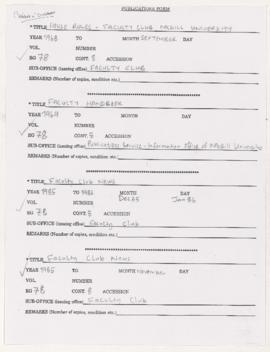 PUBLICATIONS FORM
* TITLE HOUSE RULES - FACULTY CLUB MCGILL UNIVERSITY
YEAR 1968 TO MONTH SEPTEMBER DAY
VOL. NUMBER
RG 78 CONT. 8 ACCESSION
SUB-OFFICE (issuing office) FACULTY CLUB
REMARKS (Number of copies, condition etc.)
* TITLE FACULTY HANDBOOK
YEAR 1969 TO MONTH DAY
VOL. NUMBER
RG 78 CONT. 8 ACCESSION
SUB-OFFICE (issuing office) Publications Service - Information Office of McGill University
REMARKS (Number of copies, condition etc.)
* TITLE Faculty Club News
YEAR 1985 TO 1986 MONTH DAY
Dec 85 Jan 86
VOL. NUMBER
RG 78 CONT. 8 ACCESSION
SUB-OFFICE (issuing office) Faculty Club
REMARKS (Number of copies, condition etc.)
* TITLE Faculty Club News
YEAR 1985 TO MONTH November DAY
VOL. NUMBER
RG 78 CONT. 8 ACCESSION
SUB-OFFICE (issuing office) Faculty Club
REMARKS (Number of copies, condition etc.)